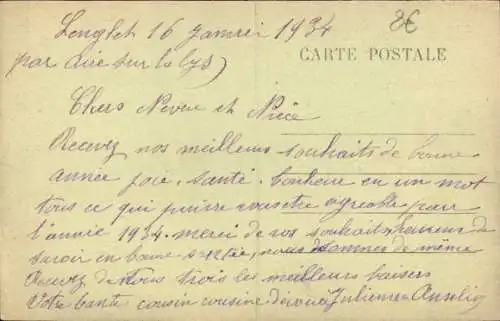 Longhet 16 Janvier 1934
8€
par aire sur la lys)
CARTE POSTALE
Chers Neveu et Niece
Recevez nos meilleurs souhaits de bonne
année joie, santé. bonheur en un mot
tous ce qui puisse vous être agreable pour
l'année 1934. merci de vos souhaits, heureux de
savoir en bonne santée, nous sommes de même
Recevez de nous trois les meilleurs baisers
Votre tante cousin cousine dévoués Julienne